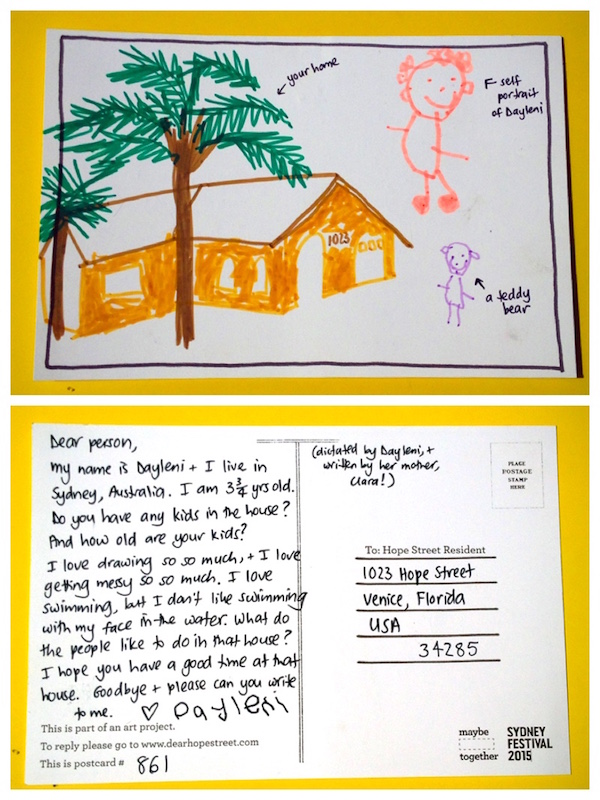 your home
self
portrait
of Dayleni
1023
a teddy
bear
Dear person,
my name is Dayleni + I live in
Sydney, Australia. I am 3 3/4 yrs old.
Do you have any kids in the house?
And how old are your kids?
I love drawing so so much, + I love
getting messy so so much. I love
swimming, but I don't like swimming
with my face in the water. What do
the people like to do in that house?
I hope you have a good time at that
house. Goodbye + please can you write
to me. ♡ Dayleni
This is part of an art project.
To reply please go to www.dearhopestreet.com
This is postcard # 861
(dictated by Dayleni, +
written by her mother,
Clara!)
PLACE
POSTAGE
STAMP
HERE
To: Hope Street Resident
1023 Hope Street
Venice, Florida
USA
34285
maybe
together
SYDNEY
FESTIVAL
2015